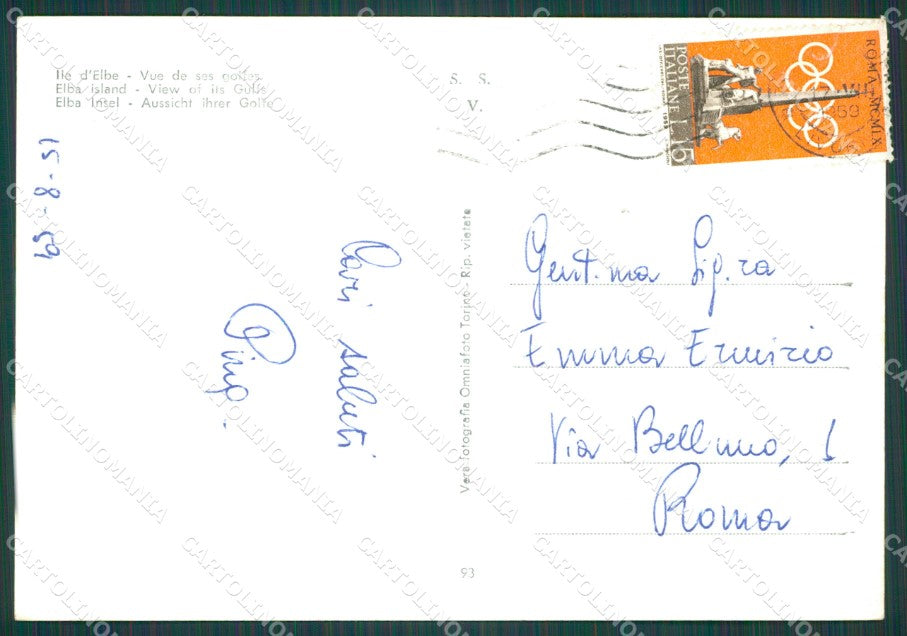 Ile d'Elbe - Vue de ses golfes
Elba island - View of its Gulfs
Elba Insel - Aussicht ihrer Golfe
S. S.
V.
POSTE ITALIANE L. 15
1959
ROMA · MCMLX
15-8-59
Cari saluti
Pino.
Vera fotografia Omniafoto Torino - Rip. vietata
Gent.ma Sig.ra
Emma Ermirio
Via Belluno, 1
Roma
93
CARTOLINOMANIA